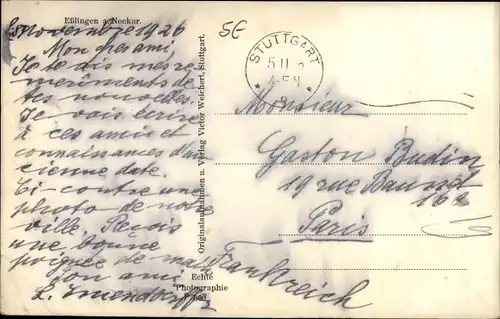 Eßlingen a. Neckar.
Novembre 1926
Mon cher ami,
Je te dis mes re
merciments de
tes nouvelles.
Je vais écrire
à ces amis et
connaissances d'an
cienne date.
Ci-contre une
photo de notre
ville. Reçois
une bonne
poignée de main
ton ami
Originalaufnahmen u. Verlag Victor Weichert, Stuttgart.
Echte
Photographie
5€
STUTTGART
5 11
4-5 N
Monsieur
Gaston Budin
19 rue
Paris
Frankreich